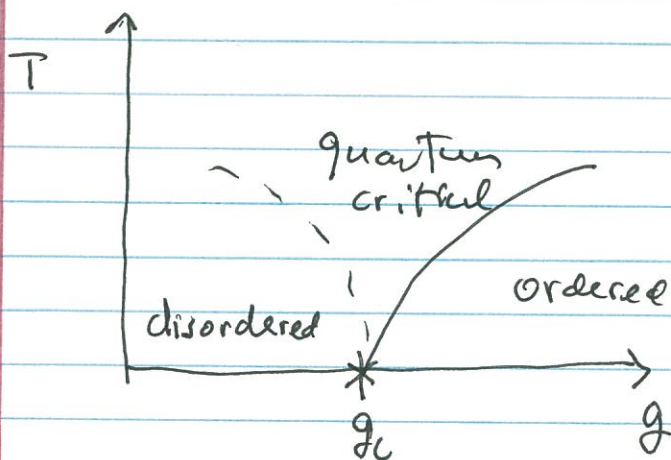 T
quantum
critical
ordered
disordered
gc
g